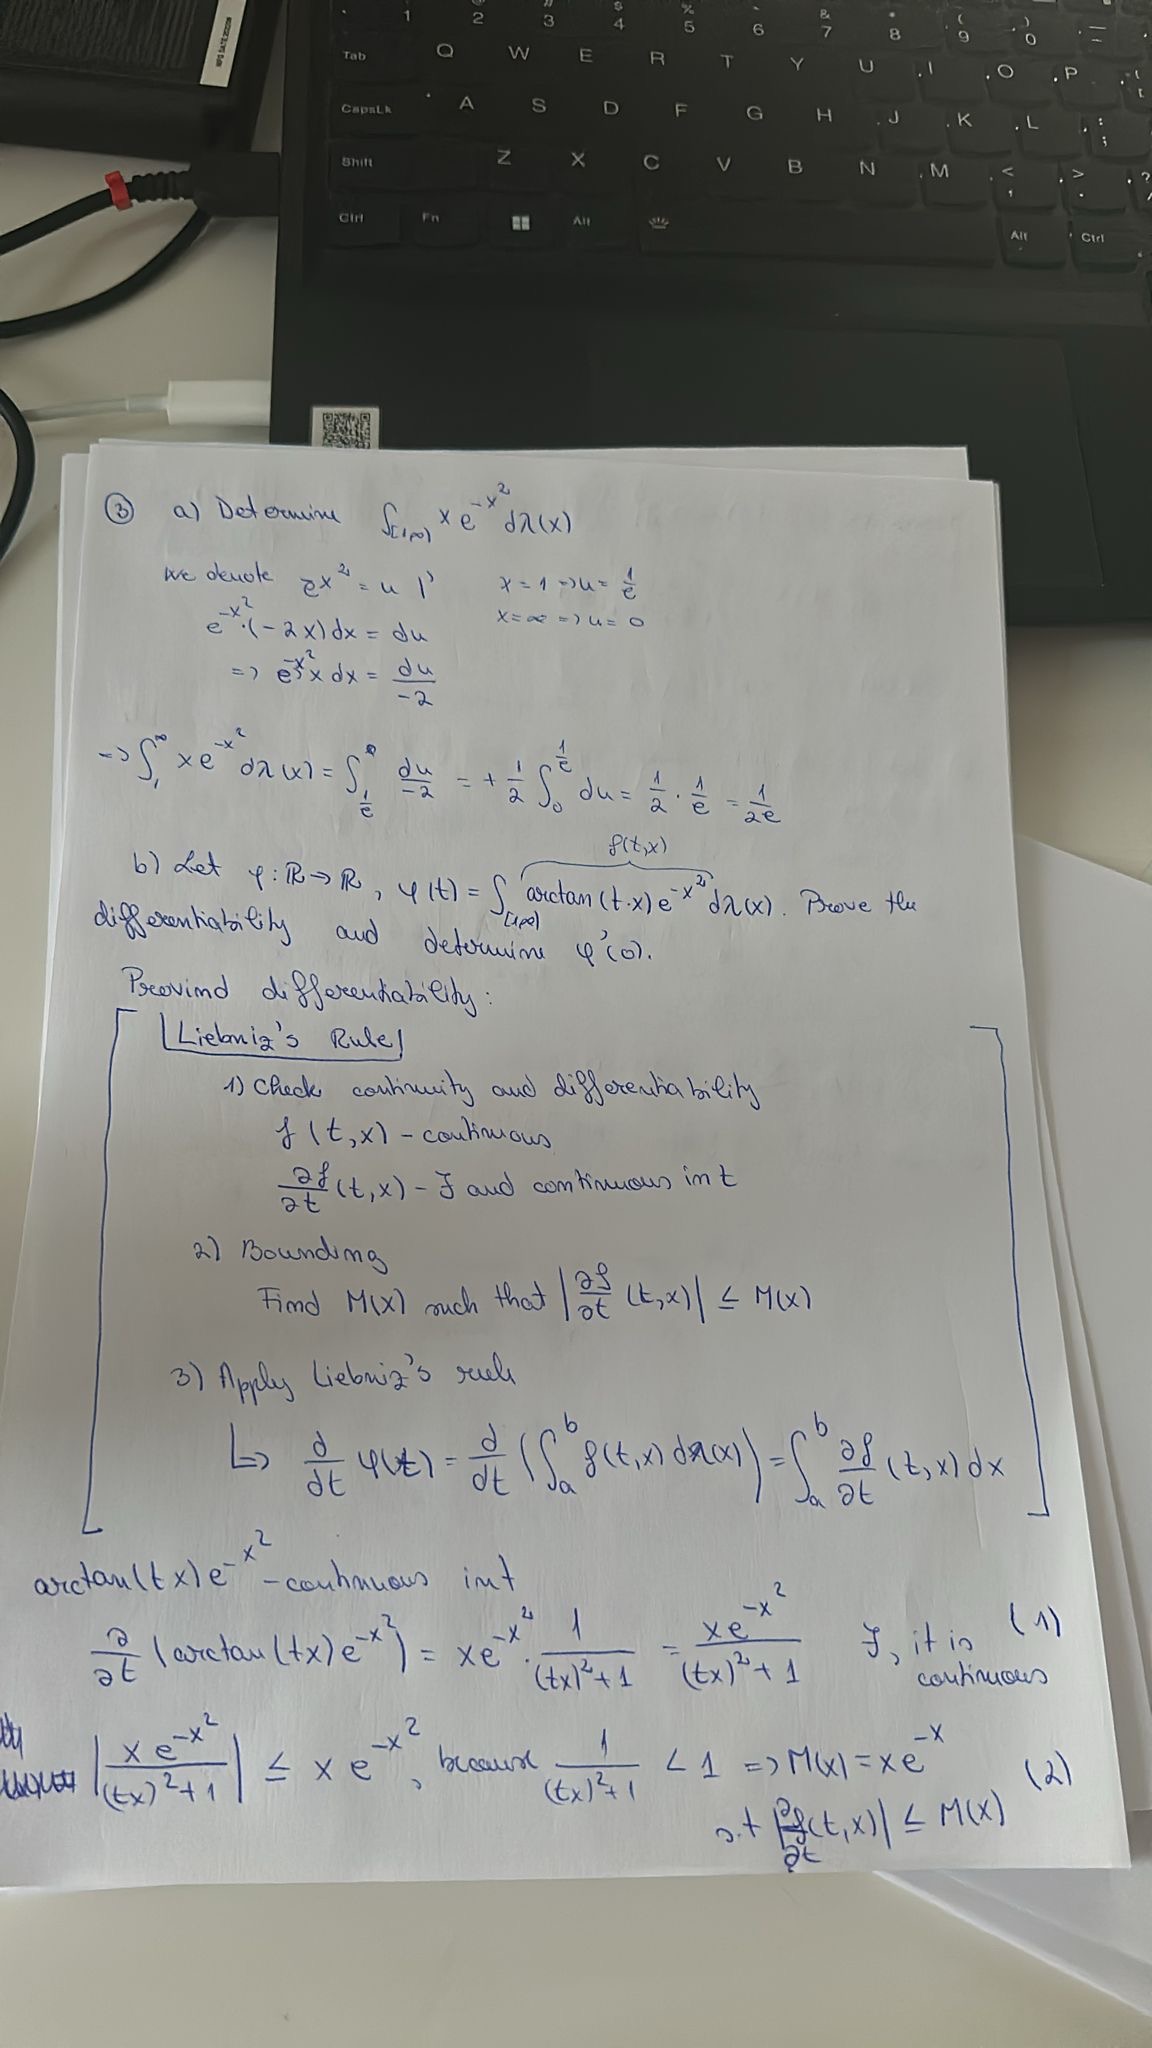 MFG DATE:
1 2 3 4 5 6 7 8 9 0
Tab Q W E R T Y U I O P
CapsLk A S D F G H J K L
Shift Z X C V B N M < , > . ?
Ctrl Fn Alt Alt Ctrl
③ a) Determine ∫[1,∞) x e^-x² dλ(x)
we denote e^-x² = u |' x = 1 => u = 1/e
e^-x²·(-2x)dx = du x = ∞ => u = 0
=> e^-x² x dx = du/-2
=> ∫₁^∞ x e^-x² dλ(x) = ∫_{1/e}^0 du/-2 = + 1/2 ∫₀^{1/e} du = 1/2 · 1/e = 1/2e
f(t,x)
b) Let φ: ℝ→ℝ, φ(t) = ∫[1,∞) arctan(t·x) e^-x² dλ(x). Prove the
differentiability and determine φ'(0).
Provind differentiability:
|Liebniz's Rule|
1) Check continuity and differentiability
f(t,x) - continuous
∂f/∂t (t,x) - ∃ and continuous in t
2) Bounding
Find M(x) such that |∂f/∂t (t,x)| ≤ M(x)
3) Apply Liebniz's rule
↳ d/dt φ(t) = d/dt (∫ₐᵇ f(t,x) dλ(x)) = ∫ₐᵇ ∂f/∂t (t,x) dx
arctan(tx)e^-x² - continuous in t
∂/∂t (arctan(tx)e^-x²) = xe^-x² · 1/((tx)²+1) = xe^-x²/((tx)²+1) ∃, it is (1)
continuous
|x e^-x²/((tx)²+1)| ≤ x e^-x², because 1/((tx)²+1) < 1 => M(x) = xe^-x (2)
s.t |∂f/∂t (t,x)| ≤ M(x)